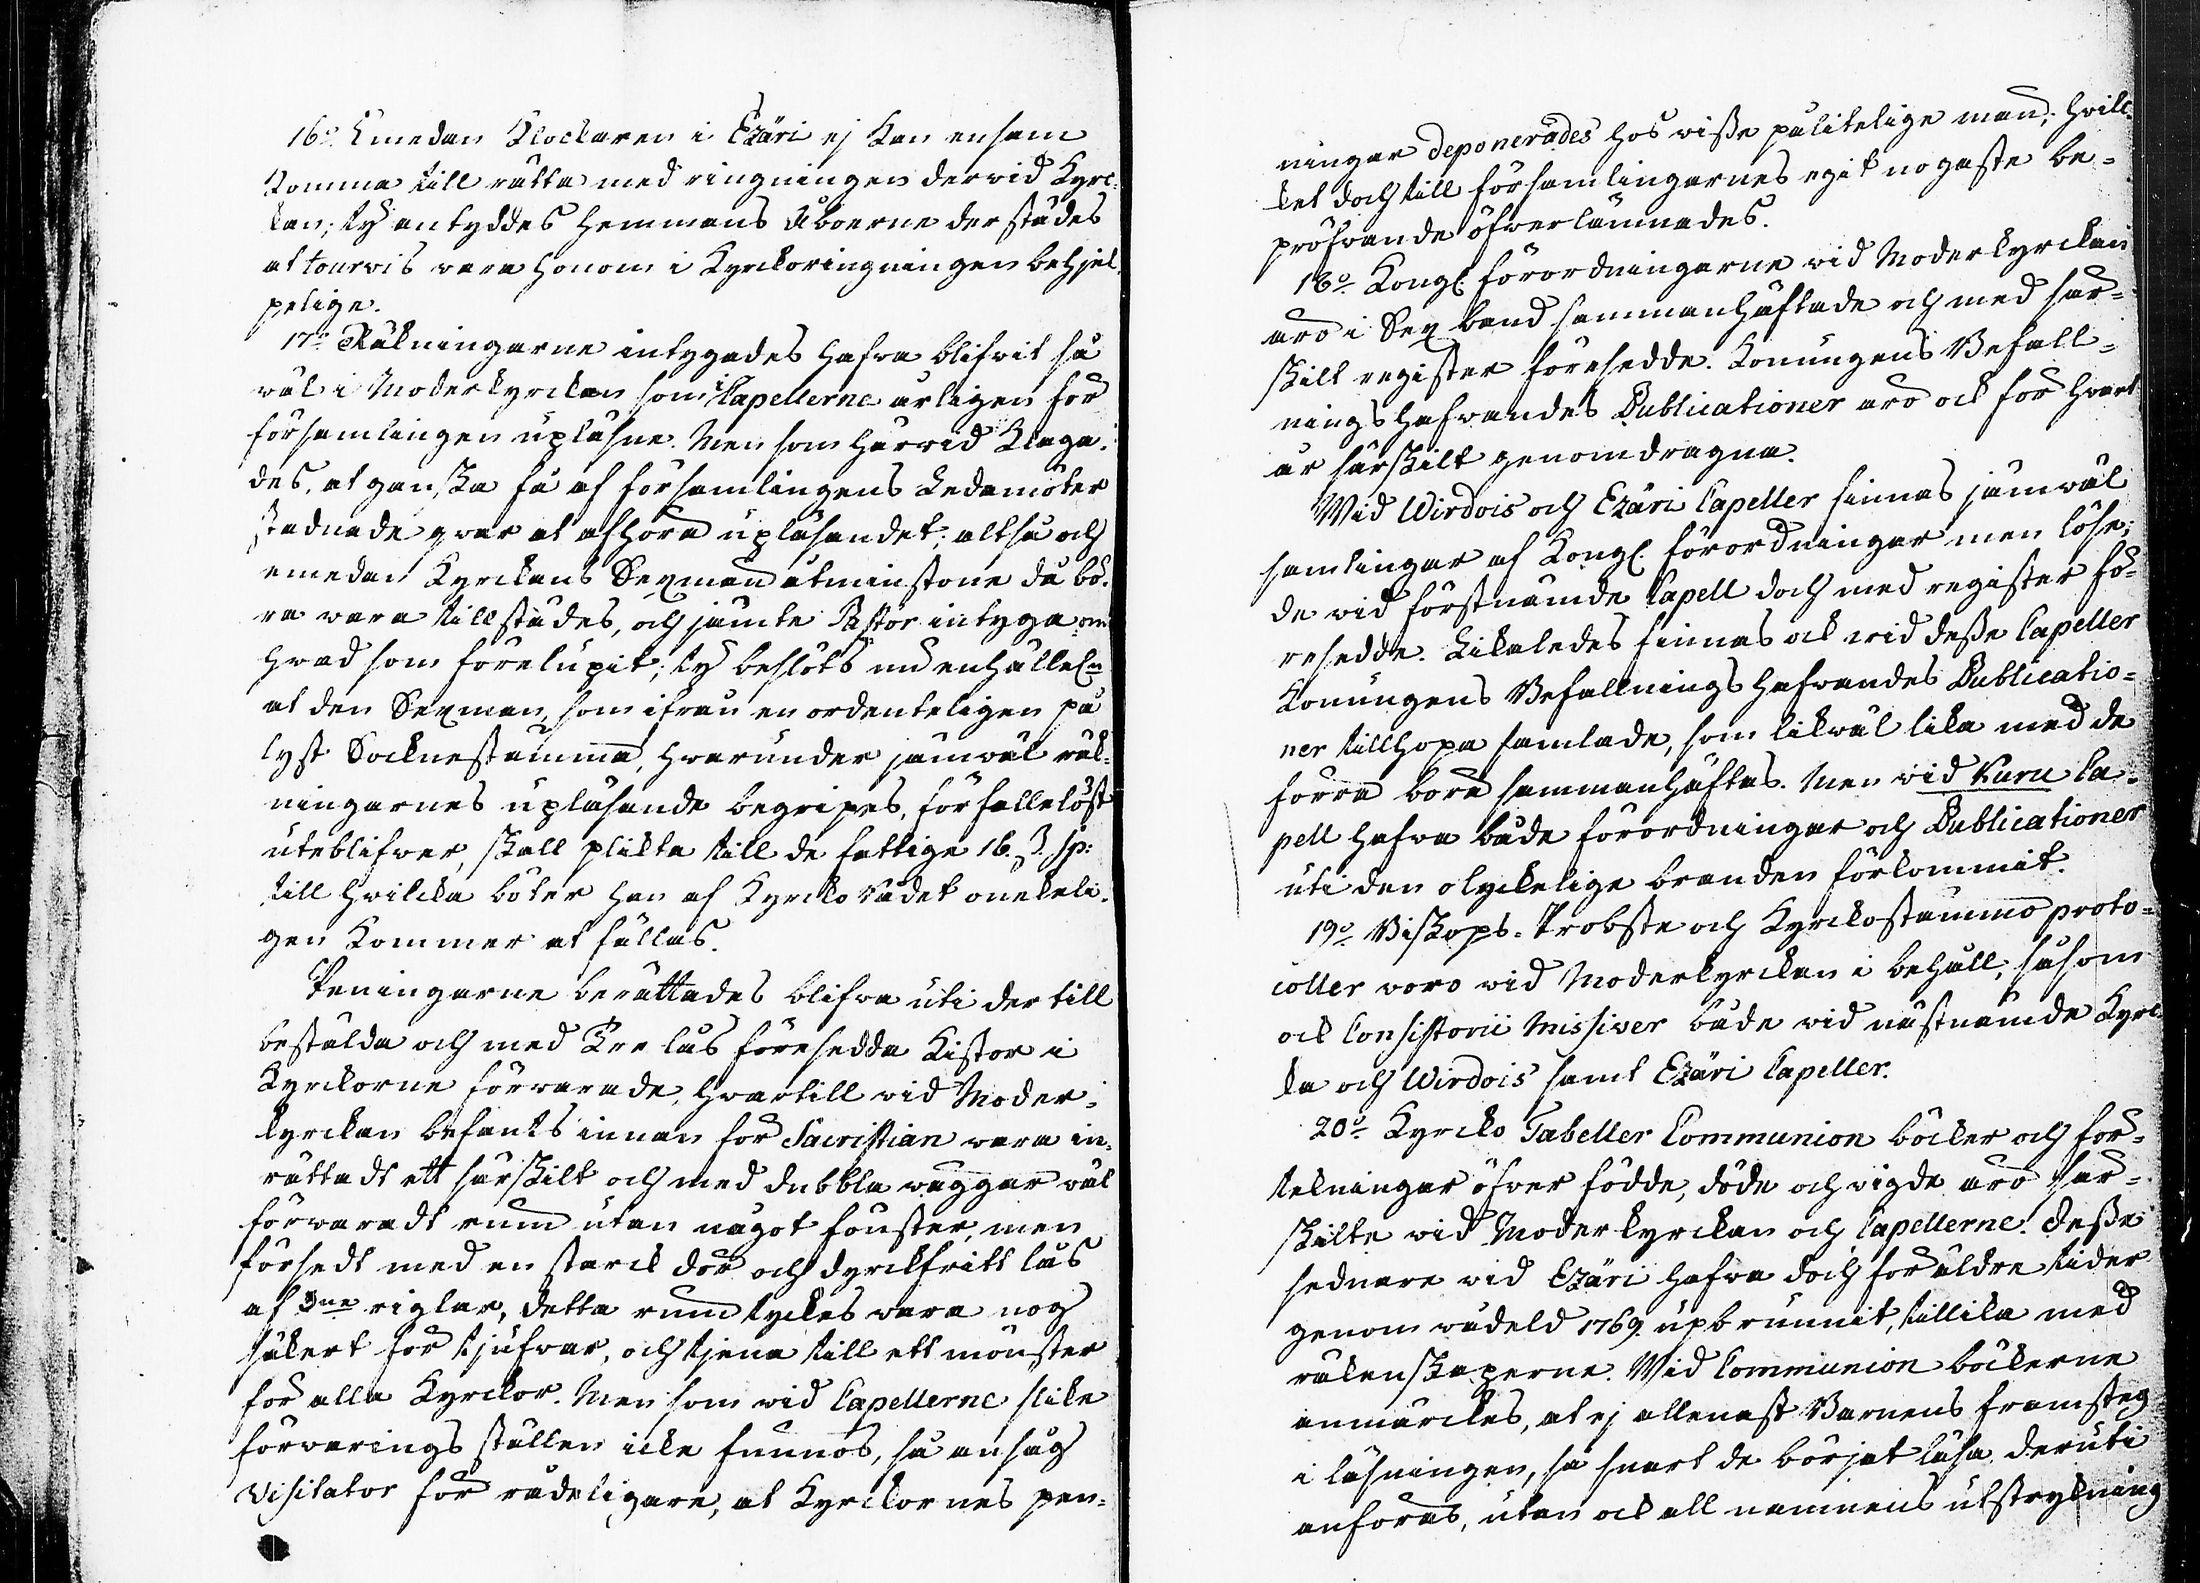 16:o Emedan Klockaren i Ezäri ej kan ensam
komma till rätta med ringningen derwid Kyrc-
kan; ty antyddes hemmans Åboerne der städes
at tourvis wara honom i Kyrckoringningen behjel-
pelige.
17:o Räkningarne intygades hafwa blifwit så
wäl i Moderkyrckan som i Capellerne årligen för
församlingen upläsne. Men som härwid klaga-
des, at ganska få af församlingens Ledamöter
stadnade qwar at afhöra upläsandet; altså och
emedan Kyrckans Sexmän åtminstone då bö-
ra wara tillstädes, och jämte Pastor intyga om
hwad som förelupit; ty beslöts nu enhälleln
at den Sexman, som ifrån en ordenteligen på
lyst Sockнestämma, hwarunder jämwäl räk-
ningarnes upläsande begripes, förfallelöst
uteblifwer, skall plikta till de fattige 16 ß. sp:
till hwilcka böter han af Kyrcko Rådet oneкeli-
gen kommer at fällas.
Peningarne berättades blifwa uti der till
bestälda och med Tre lås försedda Kistor i
Kyrckorne förwarade, hwartill wid Moder-
kyrckan befants innan för Sacristian wara in-
rättadt ett särskilt och med dubbla wäggar wäl
förwaradt rum utan något fönster, men
försedt med en starck dör och dyrckfritt lås
af 3ne riglar, detta rum tyckes wara nog
säkert för tjufwar, och tjena till ett mönster
för alla Kyrckor. Men som wid Capellerne slike
förwarings ställen icke funnos, så ansåg
Visitator för rådeligare, at Kyrckornes pen-
ningar deponerades hos wisse pålitelige män, hwil-
ket doch till församlingarnes egit nogaste be-
pröfwande öfwerlämnades.
18:o Kongl. förordningarne wid Moderkyrckan
äro i Sex band sammanhäftade och med sär-
skilt register försedde. Konungens Befall-
nings hafwandes Publicationer äro ock för hwart
år särskilt genomdragna.
Wid Wirdois och Ezäri Capeller finnas jämwäl
samlingar af Kongl. förordningar men löse;
de wid förstnämde Capell doch med register fö-
resedde. Likaledes finnas ock wid desse Capeller
Konungens Befallnings hafwandes Publicatio-
ner tillhopa samlade, som likwäl lika med de
förra böra sammanhäftas. Men wid Kuru Ca-
pell hafwa både förordningar och Publicationer
uti den olyckelige branden förkommit.
19:o Biskops- Probste och Kyrckostämmo proto-
coller woro wid Moderkyrckan i behåll, såsom
ock Consistorii Missiver både wid nästnämde Kyrc-
ka och Wirdois samt Ezäri Capeller.
20:o Kyrcko Tabeller Communion böcker och för-
tekningar öfver födde, döde och wigde äro sär-
skilte wid Moderkyrckan och Capellerne. Desse
sednare wid Ezäri hafwa doch för äldre tider
genom wådeld 1769. upbrunnit, tillika med
räkenskaperne. Wid Communion böckerne
anmärcktes, at ej allenast Barnens framsteg
i läsningen, så snart de börjat läsa, deruti
anföras, utan ock all namnens utstrykning